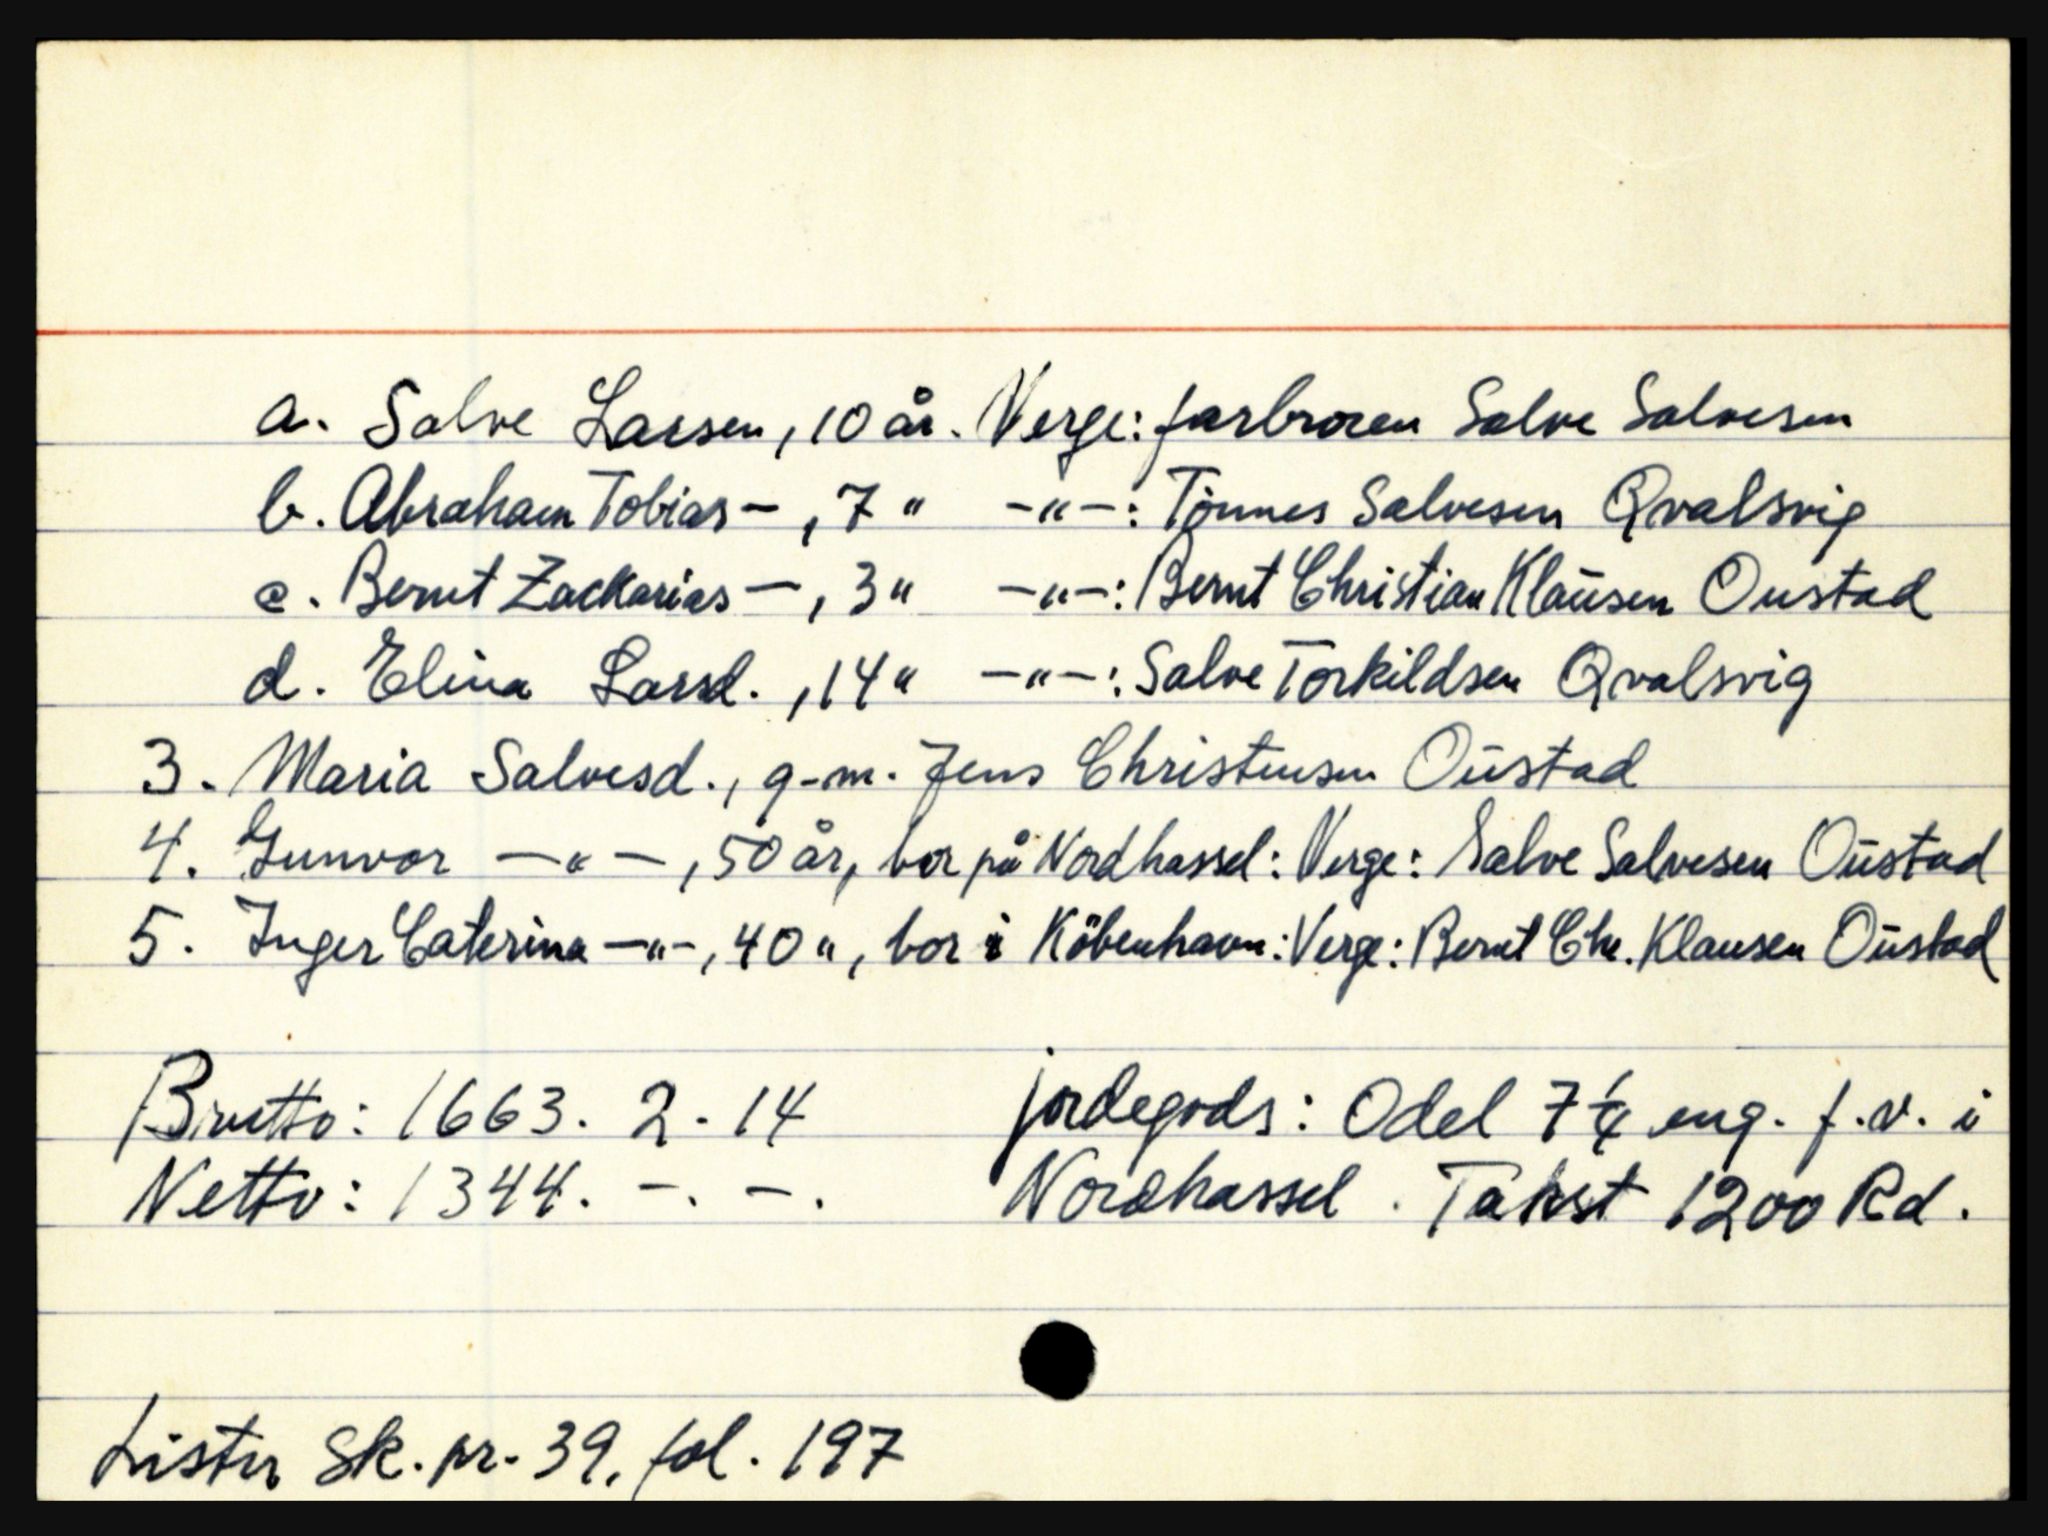 a. Salve Larsen, 10 år. Verge: farbroren Salve Salvesen
b. Abraham Tobias — , 7 " —"—: Tönnes Salvesen Qvalsvig
c. Bernt Zackarias — , 3 " —"—: Bernt Christian Klaüsen Oustad
d. Elina Larsd. , 14 " —"—: Salve Torkildsen Qvalsvig
3. Maria Salvesd., g.m. Jens Christensen Oüstad
4. Gunvor —"— , 50 år, bor på Nordhassel: Verge: Salve Salvesen Oüstad
5. Inger Caterina —"—, 40 ", bor i Köbenhavn: Verge: Bernt Chr. Klausen Oüstad
Brutto: 1663. 2. 14 jordegods: Odel 7 1/4 eng. f. v. i
Netto: 1344. —. —. Nordhassel. Takst 1200 Rd.
Lister Sk. pr. 39, fol. 197